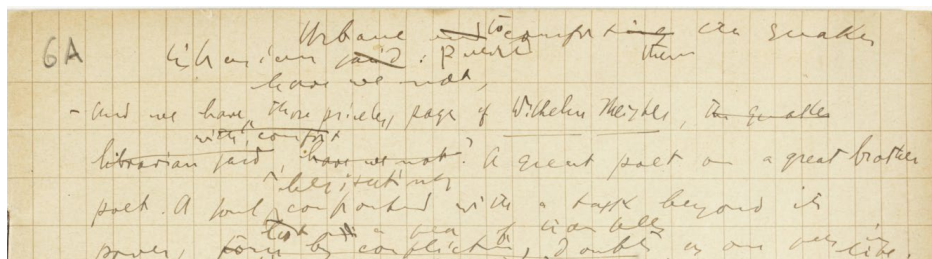 6A
Urbane and to comforting the quaker
librarian said: purred them
have we not,
- And we have, those priceless pages of Wilhelm Meister, the quaker
with comfort
librarian said, have we not? A great poet on a great brother
hesitating
poet. A soul confronted with a task beyond its
a sea of troubles
power, torn by conflicting doubts, as one sees in life.